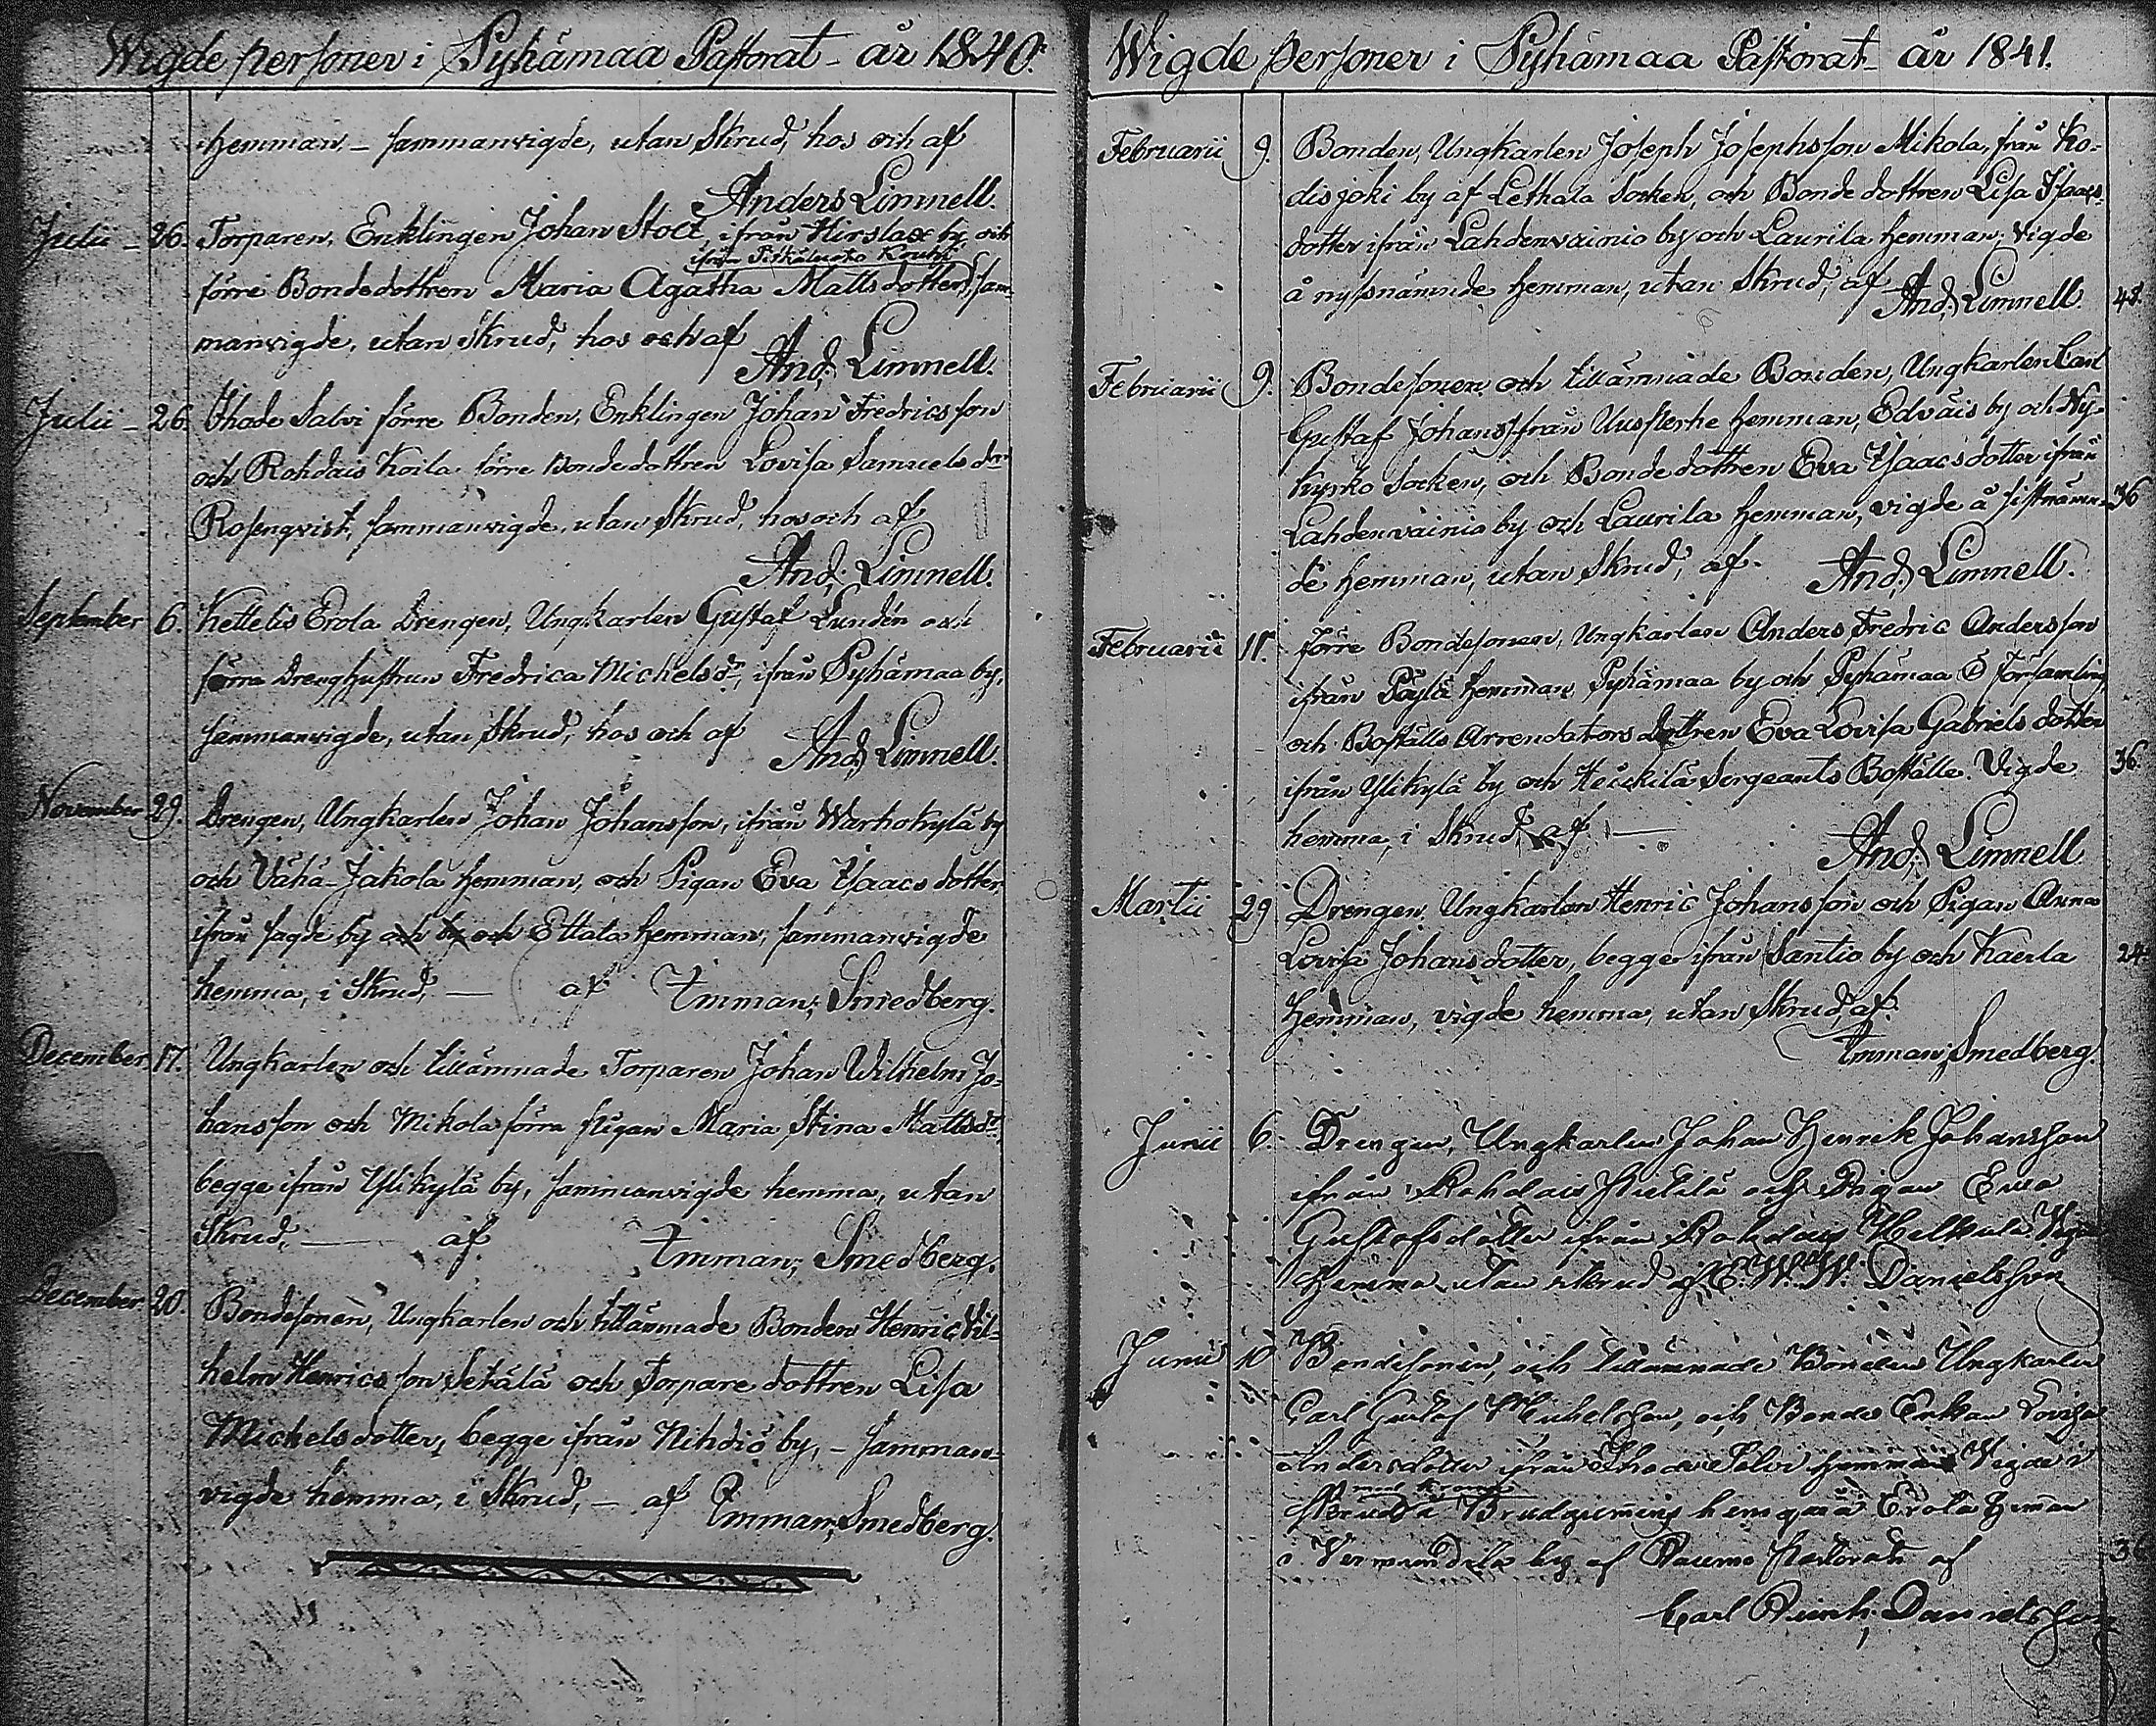 Wigde personer i Pyhämaa Pastorat - år 1840.
Hemman, - sammanvigde, utan Skrud, hos och af
Anders Limnell.
Julii - 26. Torparen, Enklingen Johan Stolt, ifrån Hirslax by och
ifrån Pitkäluoto
förre Bondedottren Maria Agatha Mattsdotter, sam-
manvigde, utan Skrud, hos och af
And; Limnell.
Julii - 26. Ihade Salvi förre Bonden, Enklingen Johan Fredricsson
och Rohdais Koila förre Bondedottren Lovisa Samuels dr
Rosenqvist, sammanvigde, utan Skrud, hos och af
And; Limnell.
September 6. Kettelis Erola Drengen, Ungkarlen Gustaf Lundén och
förra Dreng hustrun Fredrica Michelsdr, ifrån Pyhämaa by,
sammanvigde, utan Skrud, hos och af
And; Limnell.
November 29. Drengen, Ungkarlen Johan Johansson, ifrån Warhokylä by
och Vähä-Jakola Hemman, och Pigan Eva Isaacs dotter
ifrån sagde by och by och Ettala Hemman, sammanvigde
hemma, i Skrud, — af Emman; Smedberg.
December 17. Ungkarlen och tillämnade Torparen Johan Wilhelm Jo-
hansson och Mikola förra pigan Maria Stina Mattsdr,
begge ifrån Ylikylä by, sammanvigde hemma, utan
Skrud, — af Emman; Smedberg.
December 20. Bondesonen, Ungkarlen och tillämnade Bonden Henric Vil-
helm Henricsson Setälä och Torpare dottren Lisa
Michelsdotter, begge ifrån Nihdiö by, - samman-
vigde hemma, i Skrud, - af Emman; Smedberg.
Wigde personer i Pyhämaa Pastorat - år 1841.
Februarii 9. Bonden, Ungkarlen Joseph Josephsson Mikola, från Ko-
disjoki by af Lethala Socken, och Bonde dottren Lisa Isaacs-
dotter ifrån Lahdenvainio by och Laurila Hemman, Vigde
å nyssnämnde Hemman, utan Skrud, af And; Limnell.
Februarii 9. Bondesonen och tillämnade Bonden, Ungkarlen Carl
Gustaf Johanss från Hemman, Edväis by och Ny-
kyrko Socken, och Bondedottren Eva Isaacsdotter ifrån
Lahdenvainio by och Laurila Hemman, vigde å sistnämn- 36
de Hemman, utan Skrud, af And; Limnell.
Februarii förre Bondesonen, Ungkarlen Anders Fredric Andersson
ifrån Päylä Hemman Pyhämaa by och Pyhämaa Ö församling,
och Boställs Arrendators dottren Eva Lovisa Gabriels dotter
ifrån Ylikylä by och Heickilä Sergeants Boställe. Vigde 36
hemma, i Skrud, af —
And; Limnell
Martii 29 Drengen, Ungkarlen Henric Johansson och Pigan Anna
Lovisa Johansdotter, begge ifrån Santio by och Kaerla 24
Hemman, vigde hemma, utan Skrud, af
Emman; Smedberg.
Junii 6. Drengen, Ungkarlen Johan Henrik Johansson
ifrån Rohdais och Pigan Eva
Gustafsdotter ifrån Rohdais
hemma utan skrud af Danielsson
Junii 10 Bondesonen, och tillämnade Bonden Ungkarlen
Carl Gustaf Michelsson, och Bonde Enkan Lovisa
Andersdotter ifrån Ihade Salvi Hemman Vigde i
med Krona
Skrud i Brudgummens hem på Erola Heman
i Vermundila by af Raumo Pastorat af 36
Carl Danielsson